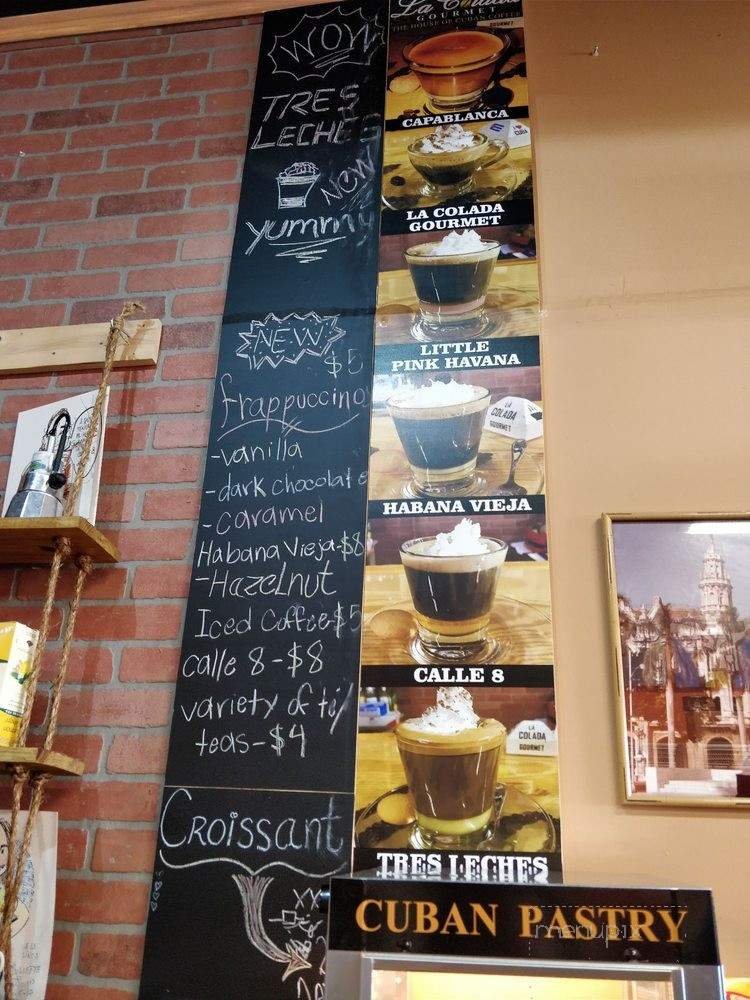 WOW
TRES
LECHES
NEW
yummy
NEW
$5
frappuccino
-vanilla
-dark chocolate
-caramel
Habana Vieja-$8
-Hazelnut
Iced Coffee-$5
calle 8-$8
variety of
teas-$4
CROISSANT
GOURMET
THE HOUSE OF CUBAN COFFEE
GOURMET
CAPABLANCA
LA COLADA
GOURMET
LITTLE
PINK HAVANA
LA
COLADA
GOURMET
HABANA VIEJA
CALLE 8
LA
COLADA
GOURMET
TRES LECHES
CUBAN PASTRY
menupix